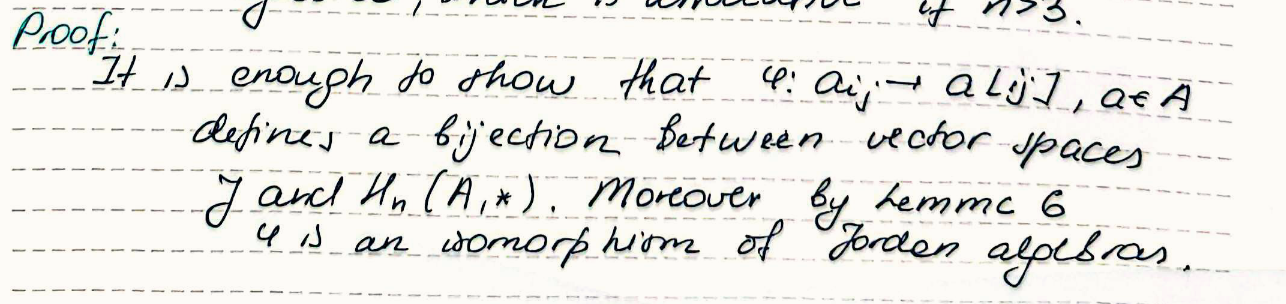 if n>3.
Proof:
It is enough to show that φ: aij → a[ij], a∈A
defines a bijection between vector spaces
J and Hn (A,*). Moreover by Lemmc 6
φ is an isomorphism of Jordan algebras.